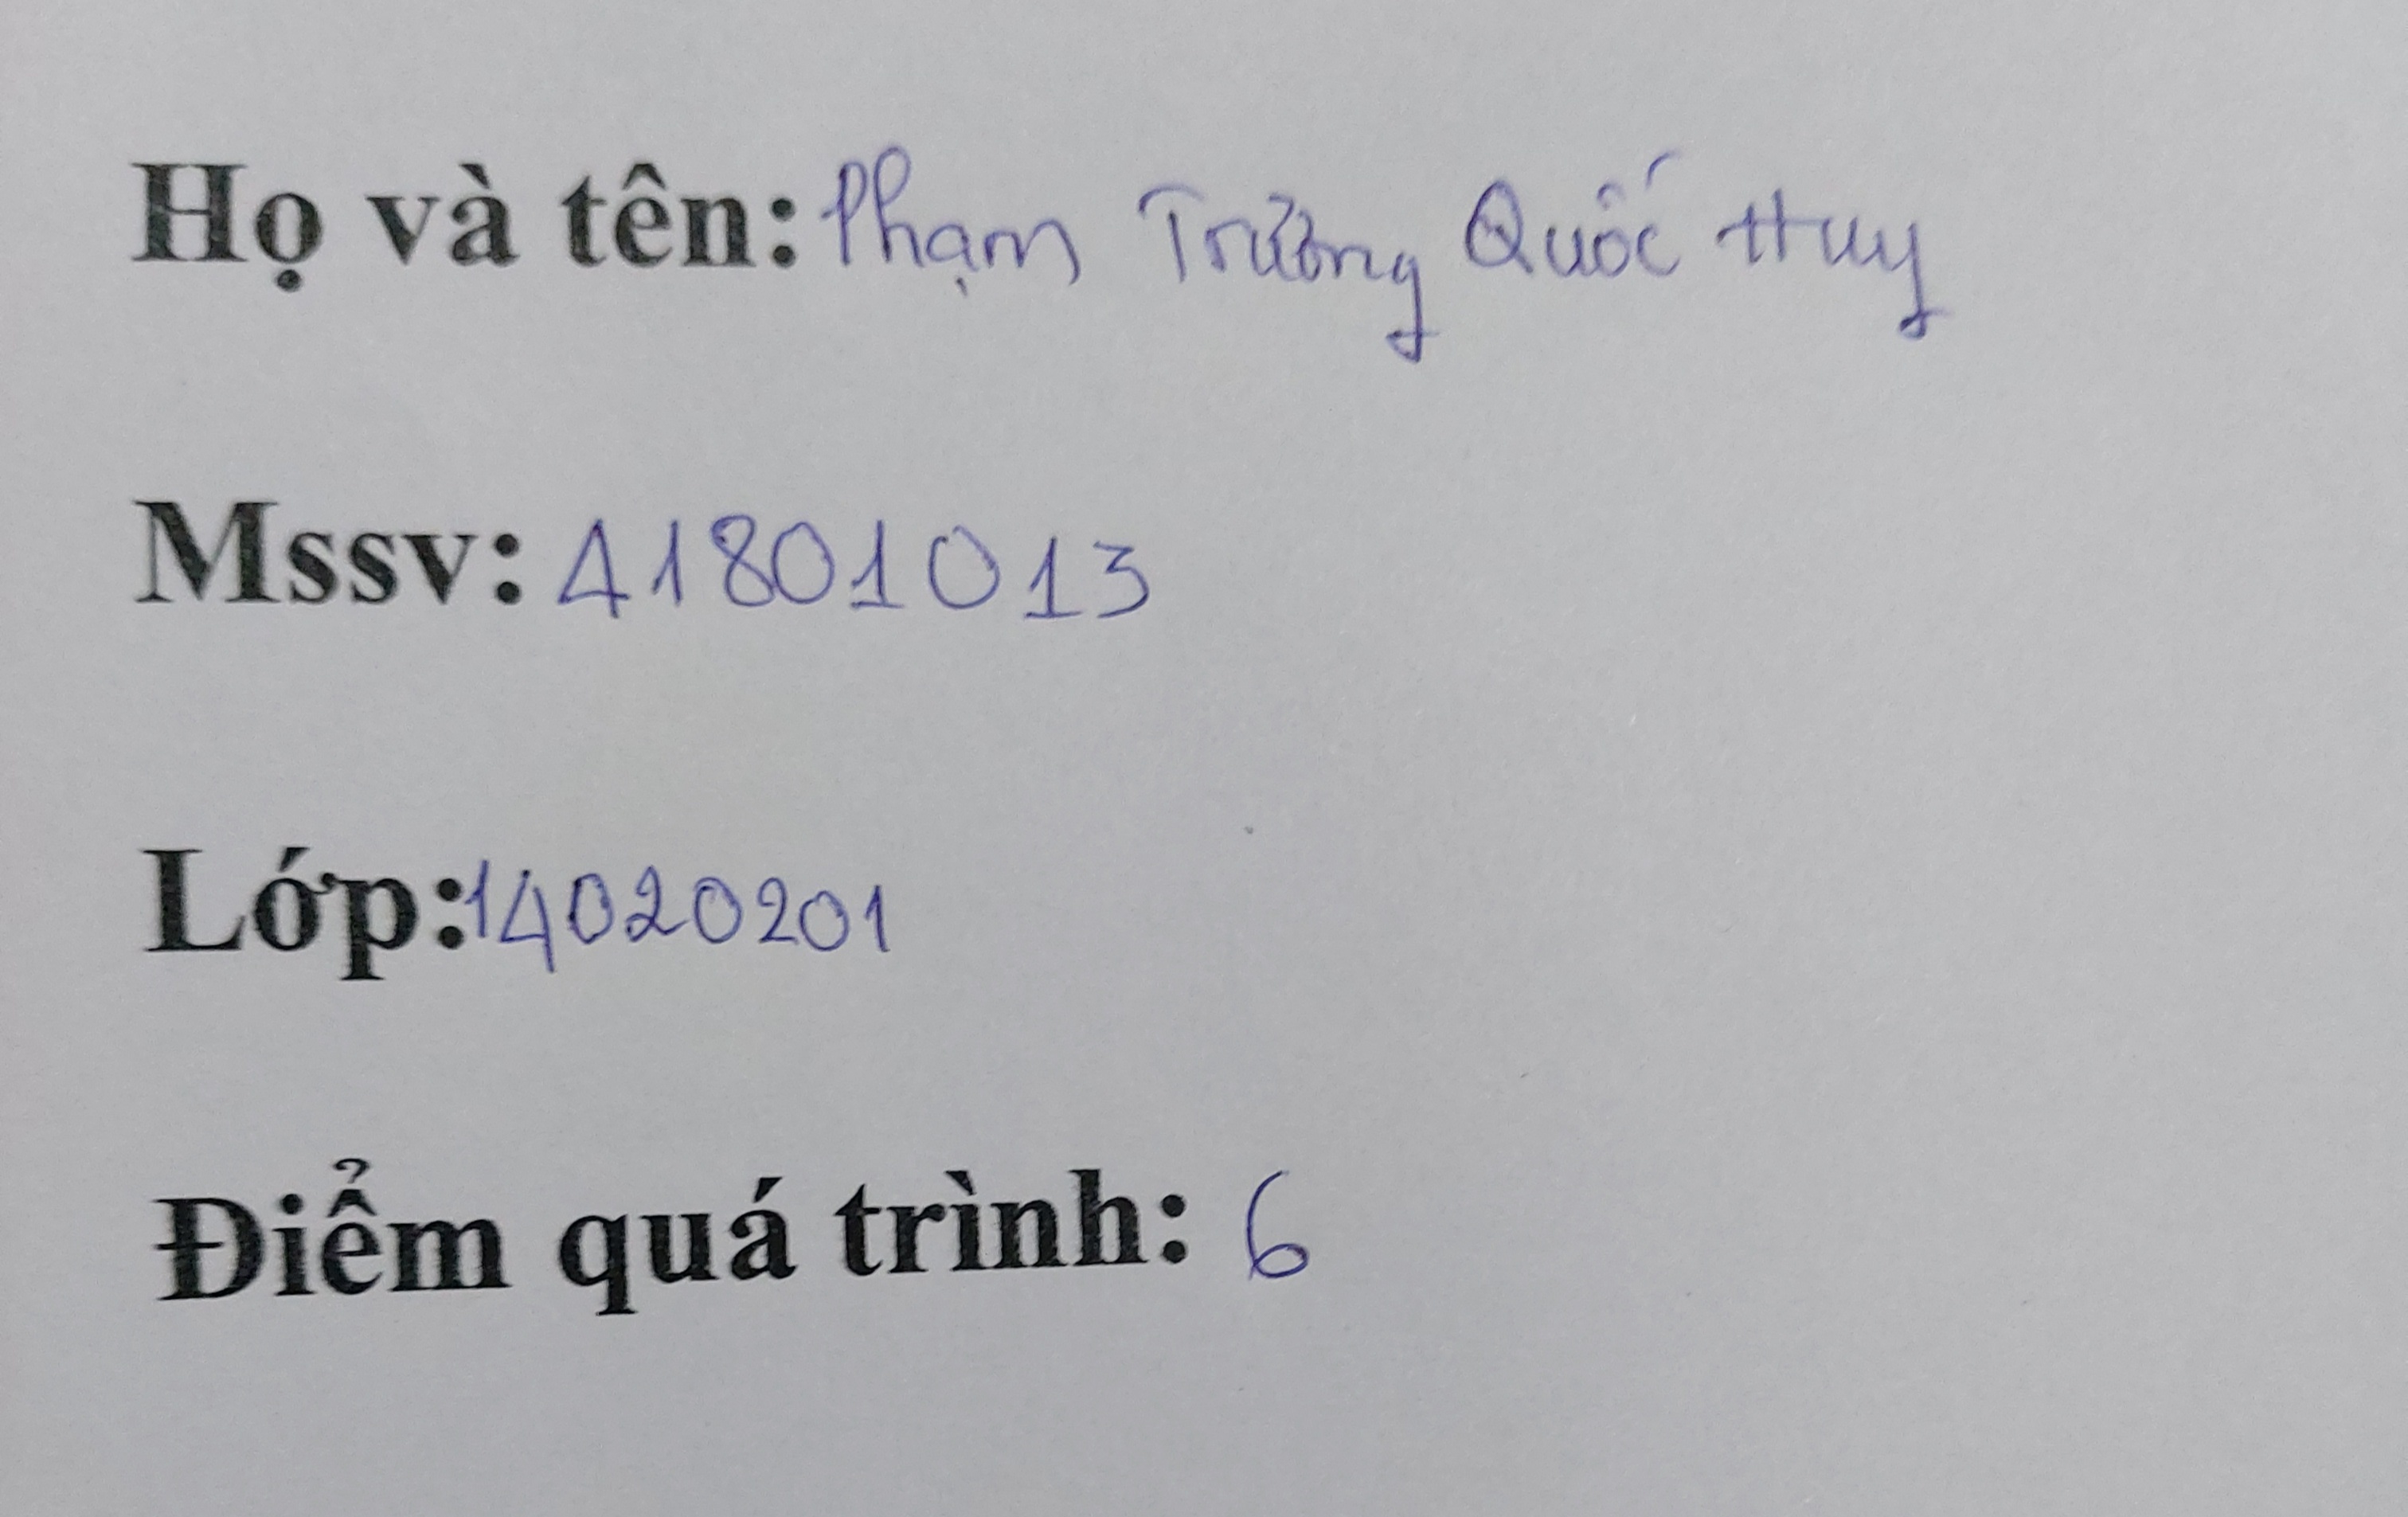 Họ và tên: Phạm Trường Quốc Huy
Mssv: 41801013
Lớp: 14020201
Điểm quá trình: 6